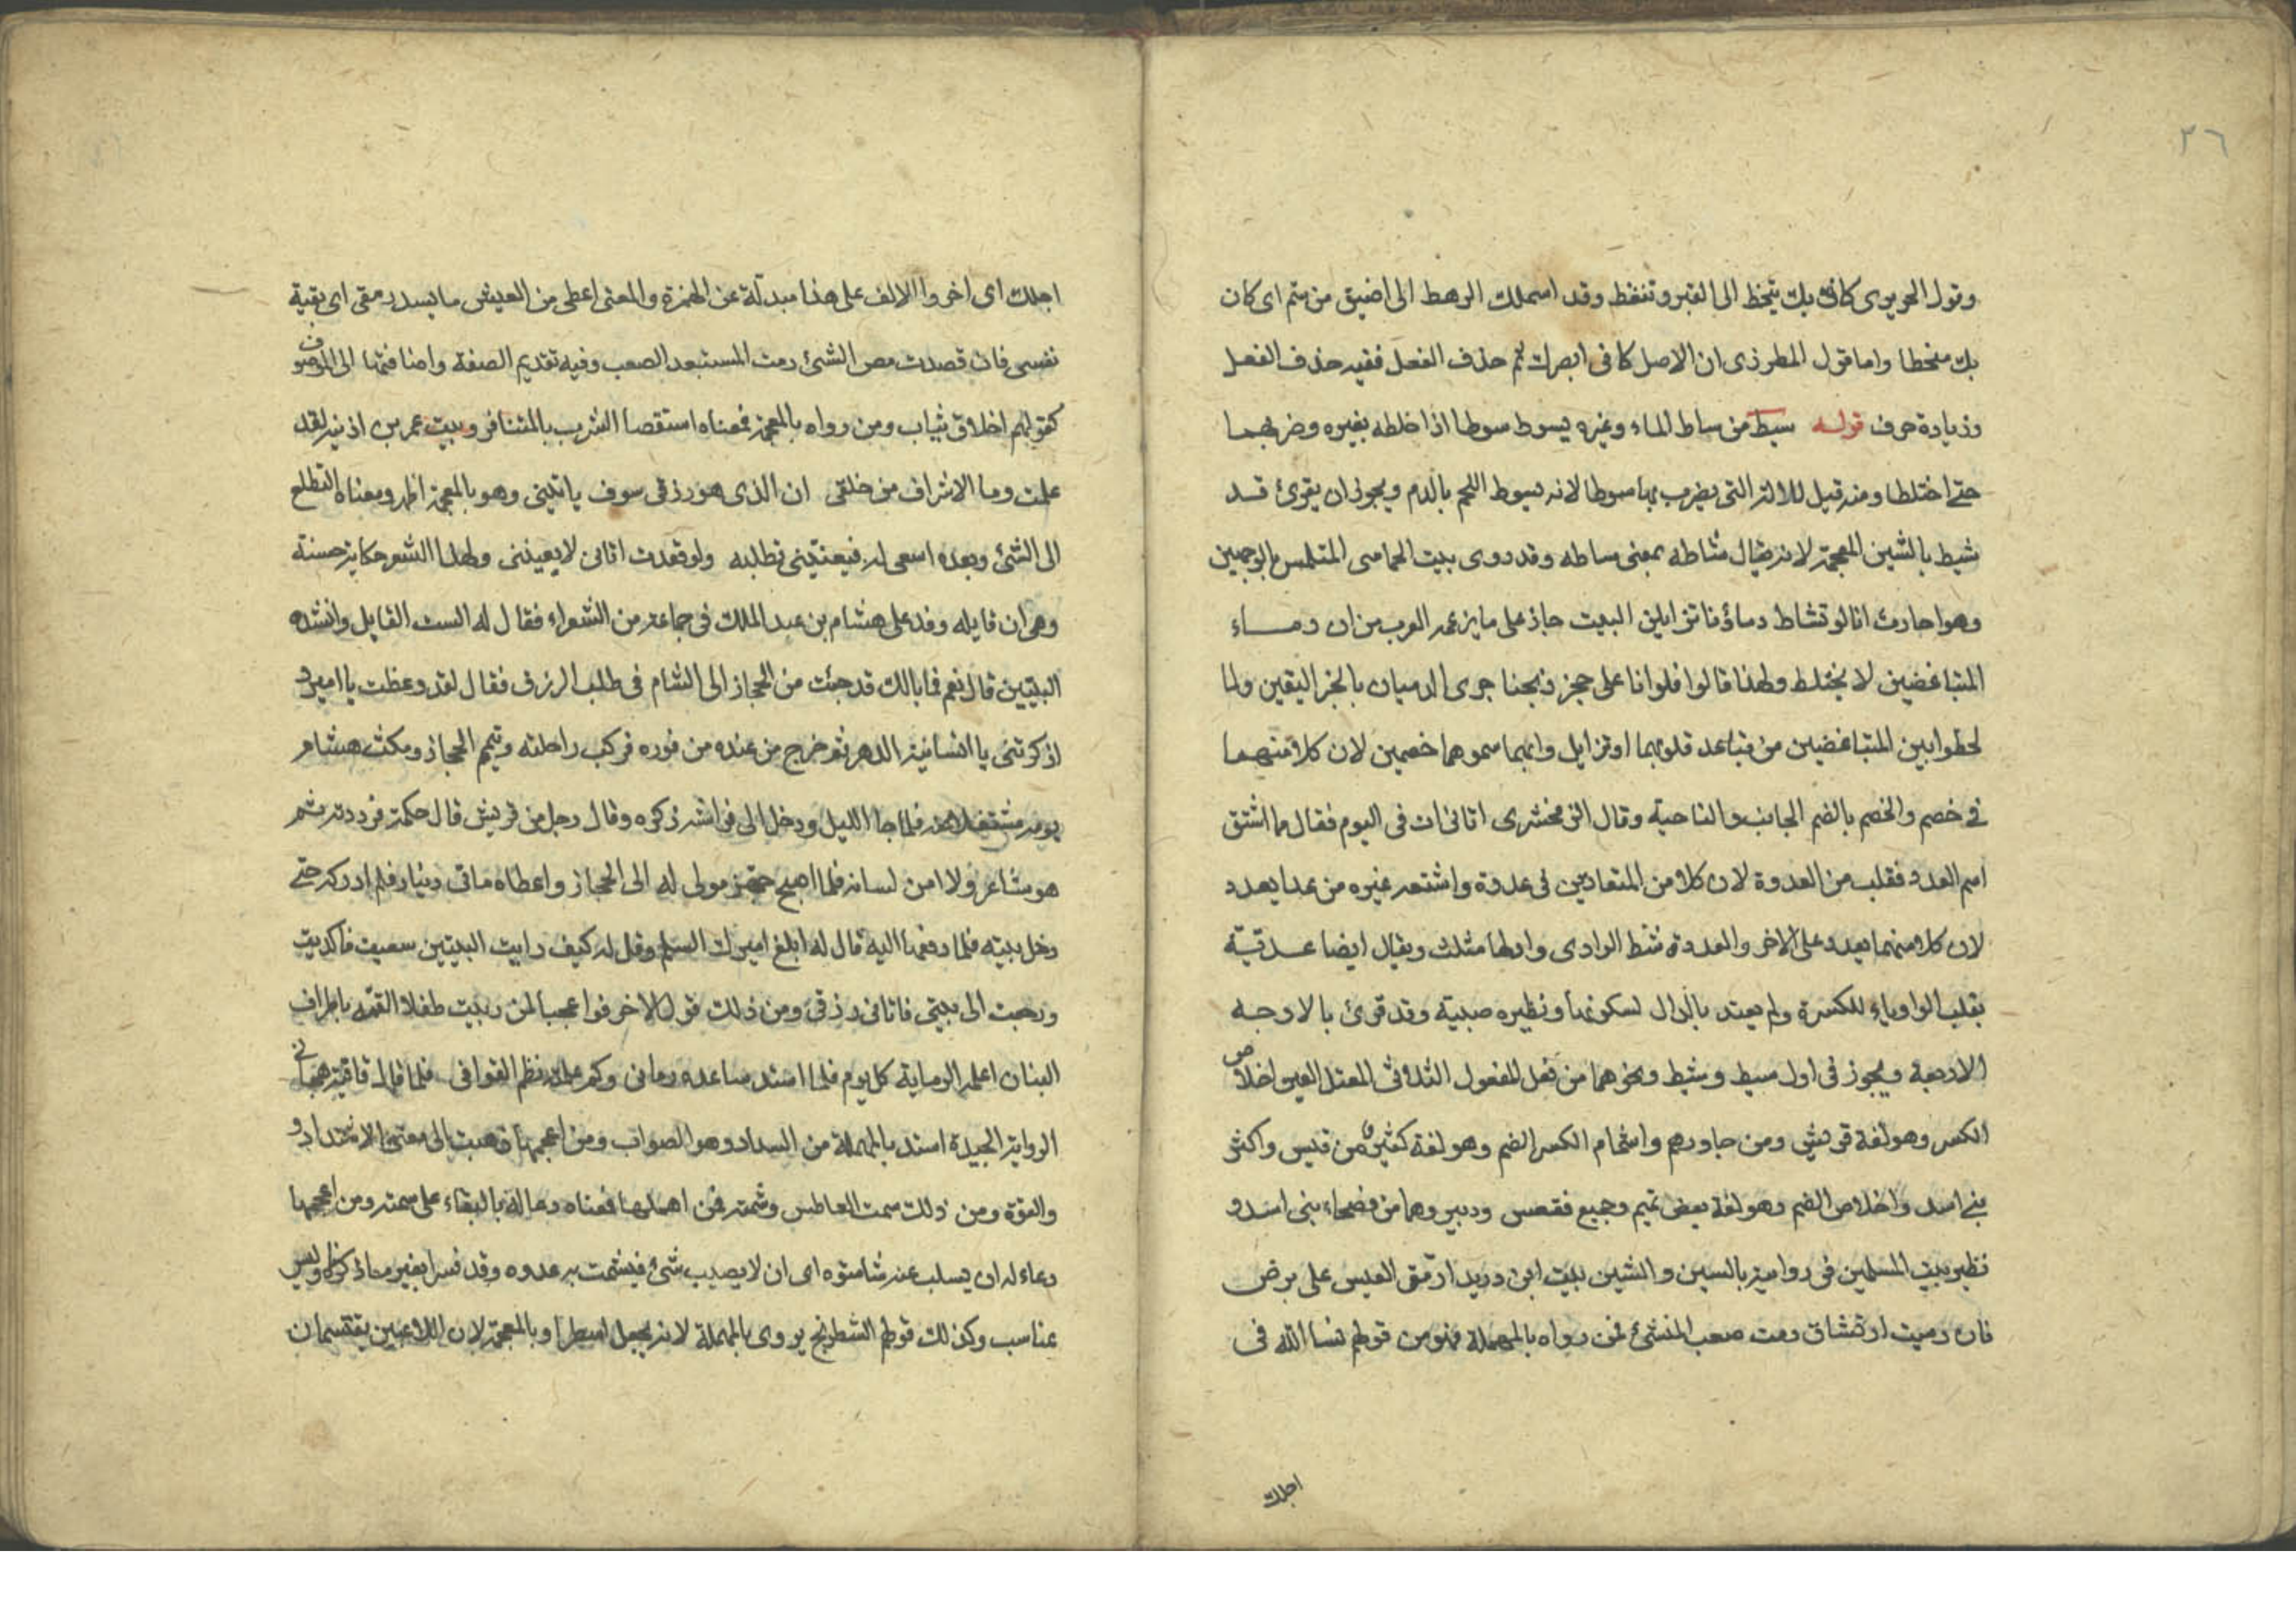 ٢٦
وقول الحريري كانى بك تنحط الى القبر وتنغط وقد اسملك الرهط الى اضيق من سم اى كان
بك منحطا واما قول المطرزى ان الاصل كانى ابصرك ثم حذف الفعل ففيه حذف الفعل
وزيادة حرف قوله سيط من ساط الماء وغيره يسوط سوطا اذا خلطه بغيره وضربهما
حتى اختلطا ومنه قيل للالة التى يضرب بها سوطا لانه يسوط اللحم بالدم ويجوز ان يقرئ قد
شيط بالشين المعجمة لانه يقال شاطه بمعنى ساطه وقد روى بيت الحماسى المتلمس بالوجهين
وهو احارث انا لو تشاط دماؤنا تزايلن البيت جاز على ما يزعمه العرب من ان دماء
المتباغضين لا يختلط ولهذا قالوا فلوانا على حجر ذبحنا جرى الدميان بالخبر اليقين ولما
لحظوا بين المتباغضين من تباعد قلوبهما اوتزايل دمائهما سموهما خصمين لان كلا منهما
فى خصم والخصم بالضم الجانب والناحية وقال الزمخشرى اتانى ات فى النوم فقال مما اشتق
اسم العدو فقلت من العدوة لان كلا من المتعاديين فى عدوة واشتقه غيره من عدا يعدو
لان كلا منهما يعدو على الاخر والعدوة شط الوادى واولها مثلث ويقال ايضا عدية
بقلب الواو ياء للكسرة ولم يعتد بالدال لسكونها ونظيره صبية وقد قرئ بالاوجه
الاربعة ويجوز فى اول سيط وشيط ونحوهما من فعل المفعول الثلاثى المعتل العين اخلاص
الكسر وهو لغة قريش ومن جاورهم واشمام الكسر الضم وهو لغة كثير من قيس واكثر
بنى اسد واخلاص الضم وهو لغة بعض تميم وجميع فقعس ودبير وهما من فصحاء بنى اسد و
نظير بيت المتلمس فى روايته بالسين والشين بيت ابن دريد ارمق العيش على برض
فان رميت ارتشاق رمت صعب المنشئ فمن رواه بالمهملة فهو من قولهم نسا الله فى
اجلك
اجلك اى اخر والالف على هذا مبدلة عن الهمزة والمعنى اعطى من العيش ما يسد رمقى اى بقية
نفسى فان قصدت مص الشئ رمت المستبعد الصعب وفيه تقديم الصفة واضافتها الى الموصوف
كقولهم اخلاق ثياب ومن رواه بالمعجمة فمعناه استقصا الشرب بالمشافر وبيت عمر بن اذنيه لقد
علمت وما الاشراف من خلقى ان الذى هو رزقى سوف ياتينى وهو بالمعجمة اظهر ومعناه التطلع
الى الشئ وبعده اسعى له فيعنينى تطلبه ولو قعدت اتانى لا يعيننى ولهذا الشعر حكاية حسنة
وهى ان قايله وفد على هشام بن عبد الملك فى جماعة من الشعراء فقال له الست القايل وانشده
البيتين قال نعم فما بالك قد جئت من الحجاز الى الشام فى طلب الرزق فقال لقد وعظت يا امير و
اذكرتنى ما انسانيه الدهر ثم خرج من عنده من فوره فركب راحلته وتيمم الحجاز ومكث هشام
يومه مشتغلا عنه فلما جا الليل ودخل الى فراشه ذكره وقال رجل من قريش قال حكمة فرددته ثم
هو شاعر ولا امن لسانه فلما اصبح جهز مولى له الى الحجاز واعطاه ماتى دينار فلم ادركه حتى
دخل بيته فلما دفعها اليه قال له ابلغ اميرك السلام وقل له كيف رايت البيتين سعيت فاكديت
ورجعت الى بيتى فاتانى رزقى ومن ذلك قول الاخر فوا عجبا لمن ربيت طفلا القمه باطراف
البنان اعلمه الرماية كل يوم فلما استد ساعده رمانى وكم علمته نظم القوافى فلما قال قافية هجانى
الرواية الجيدة استد بالمهملة من السداد وهو الصواب ومن اعجمها ذهب الى معنى الاشتداد و
والقوة ومن ذلك سمت العاطس وشمته فمن اهملها فمعناه دعا له بالبقاء على سمته ومن اعجمها
دعاء له ان يسلب عنه شامتوه اى ان لا يصيب شئ فيشمت به عدوه وقد فسرا بغير ما ذكرنا وليس
عناسب وكذلك قولهم الشطرنج يروى بالمهملة لانه يجعل اسطرا وبالمعجمة لان اللاعبين يقتسمان